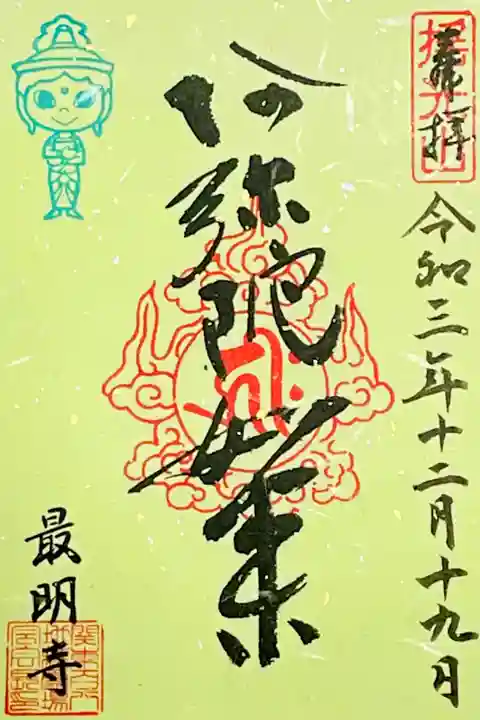 奉拝
令和三年十二月十九日
阿弥陀如来
最明寺